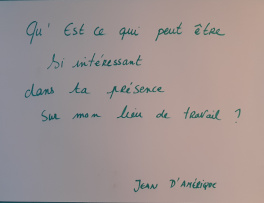 Qu'Est ce qui peut être
si intéressant
dans ta présence
sur mon lieu de travail ?
JEAN D'AMÉRIQUE